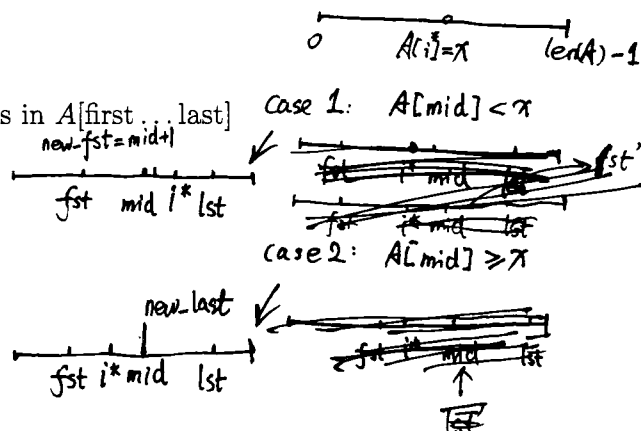 0 A[i*]=x len(A)-1
s in A[first...last]
Case 1: A[mid]<x
new-fst=mid+1
fst mid i* lst
fst i* mid lst
fst'
fst i* mid lst
case 2: A[mid]≥x
new_last
fst i* mid lst
fst i* mid lst
lst